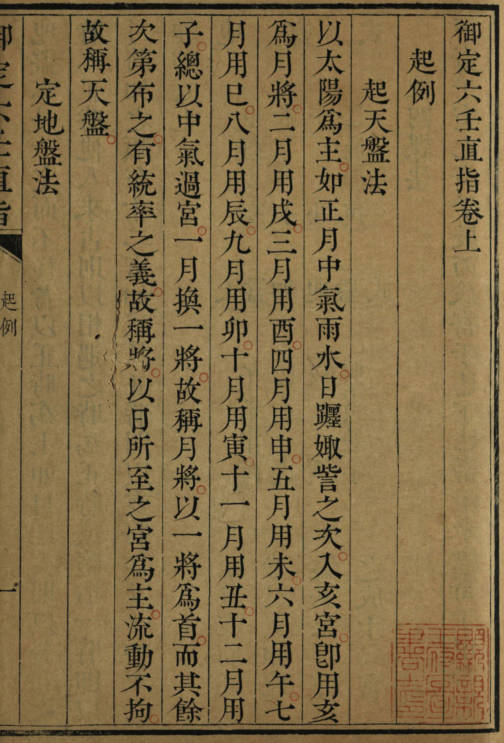 御定六壬直指卷上
起例
起天盤法
以太陽爲主如正月中氣雨水日躔娵訾之次入亥宮卽用亥
爲月將二月用戌三月用酉四月用申五月用未六月用午七
月用巳八月用辰九月用卯十月用寅十一月用丑十二月用
子總以中氣過宮一月換一將故稱月將以一將爲首而其餘
次第布之有統率之義故稱將以日所至之宮爲主流動不拘
故稱天盤
定地盤法
御定六壬直指
起例
一